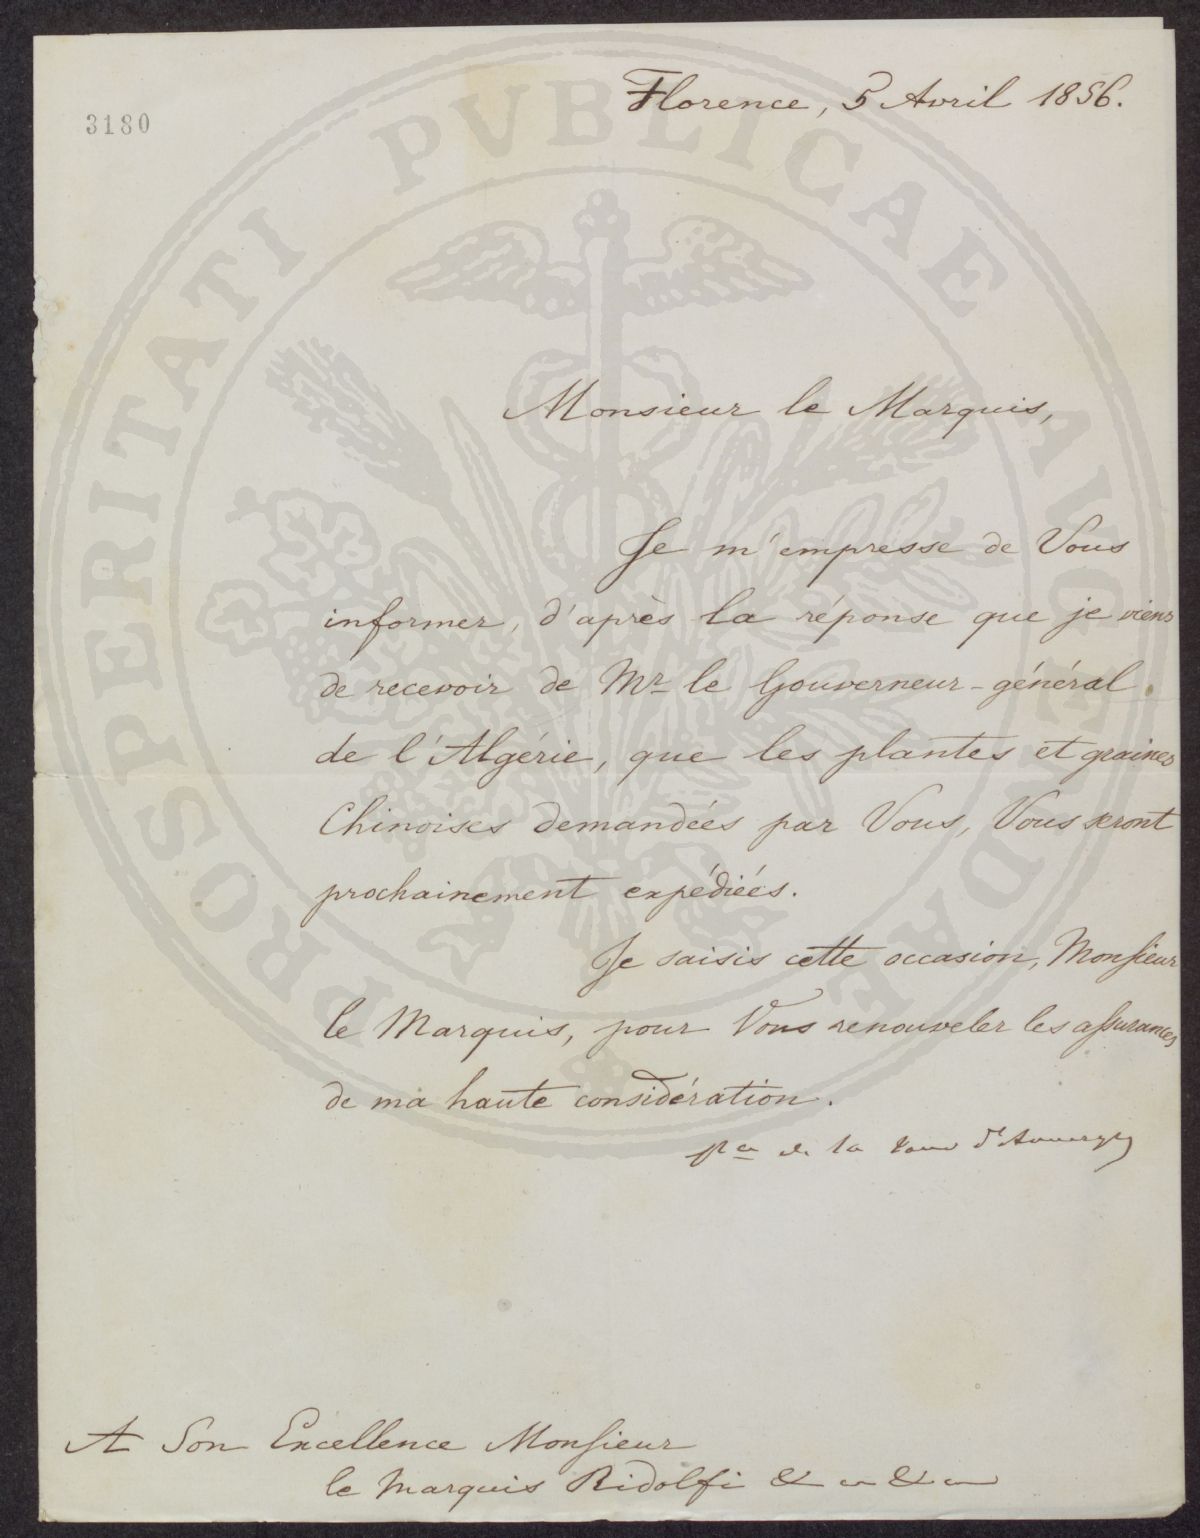 3180
Florence, 5 Avril 1856.
Monsieur le Marquis,
Je m'empresse de Vous
informer, d'après la réponse que je viens
de recevoir de Mr le Gouverneur-général
de l'Algérie, que les plantes et graines
Chinoises demandées par Vous, Vous seront
prochainement expédiées.
Je saisis cette occasion, Monsieur
le Marquis, pour Vous renouveler les assurances
de ma haute considération.
Pce de la Tour d'Auvergne
A Son Excellence Monsieur
le Marquis Ridolfi & &
PROSPERITATI PVBLICAE AVGENDAE